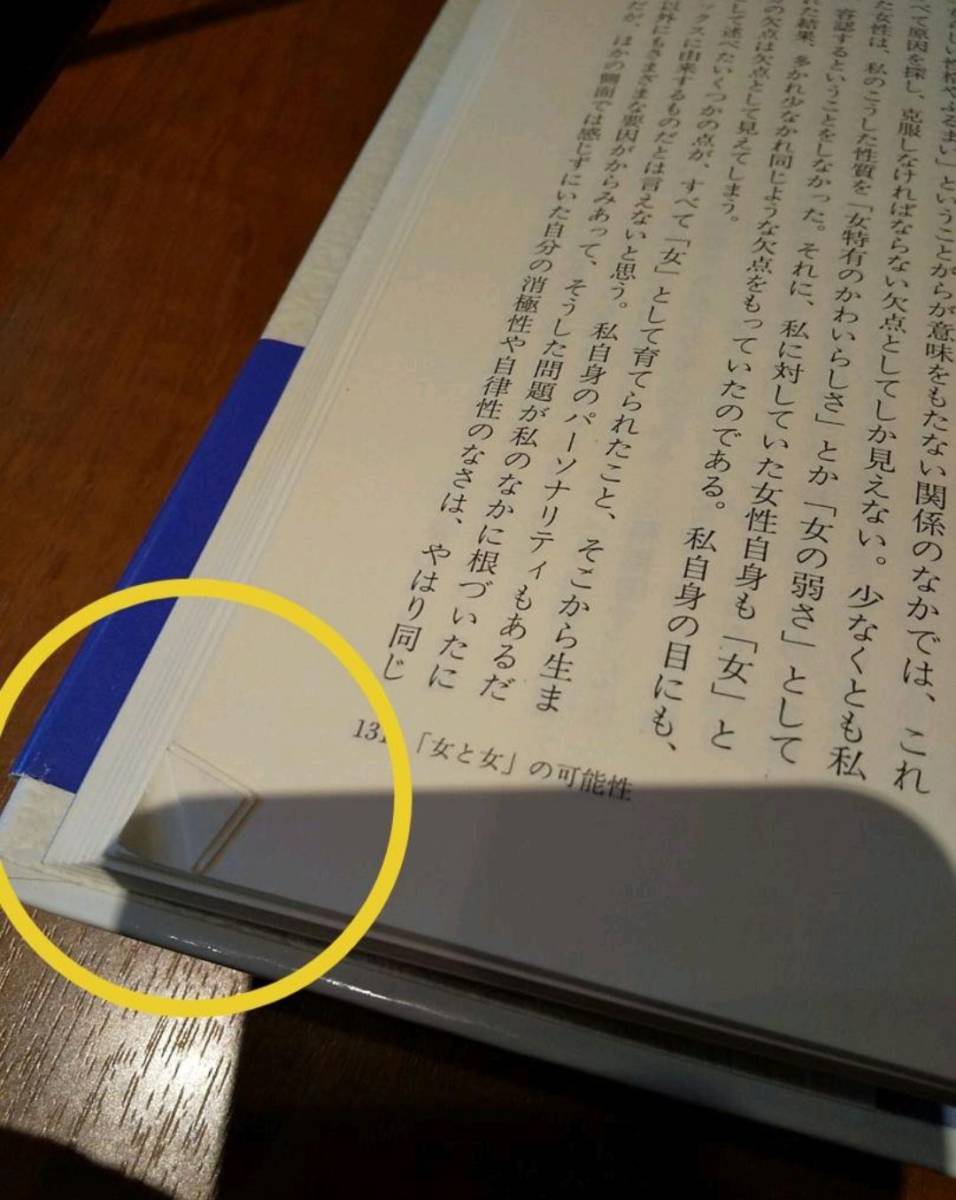 しい性格やふるまい」ということがらが意味をもたない関係のなかでは、これ
べて原因を探し、克服しなければならない欠点としてしか見えない。少なくとも私
た女性は、私のこうした性質を「女特有のかわいらしさ」とか「女の弱さ」として
容認するということをしなかった。それに、私に対していた女性自身も「女」と
れた結果、多かれ少なかれ同じような欠点をもっていたのである。私自身の目にも、
の欠点は欠点として見えてしまう。
して述べたいくつかの点が、すべて「女」として育てられたこと、そこから生ま
ックスに由来するものだとは言えないと思う。私自身のパーソナリティもあるだ
以外にもさまざまな要因がからみあって、そうした問題が私のなかに根づいたに
だが、ほかの側面では感じずにいた自分の消極性や自律性のなさは、やはり同じ
131 「女と女」の可能性